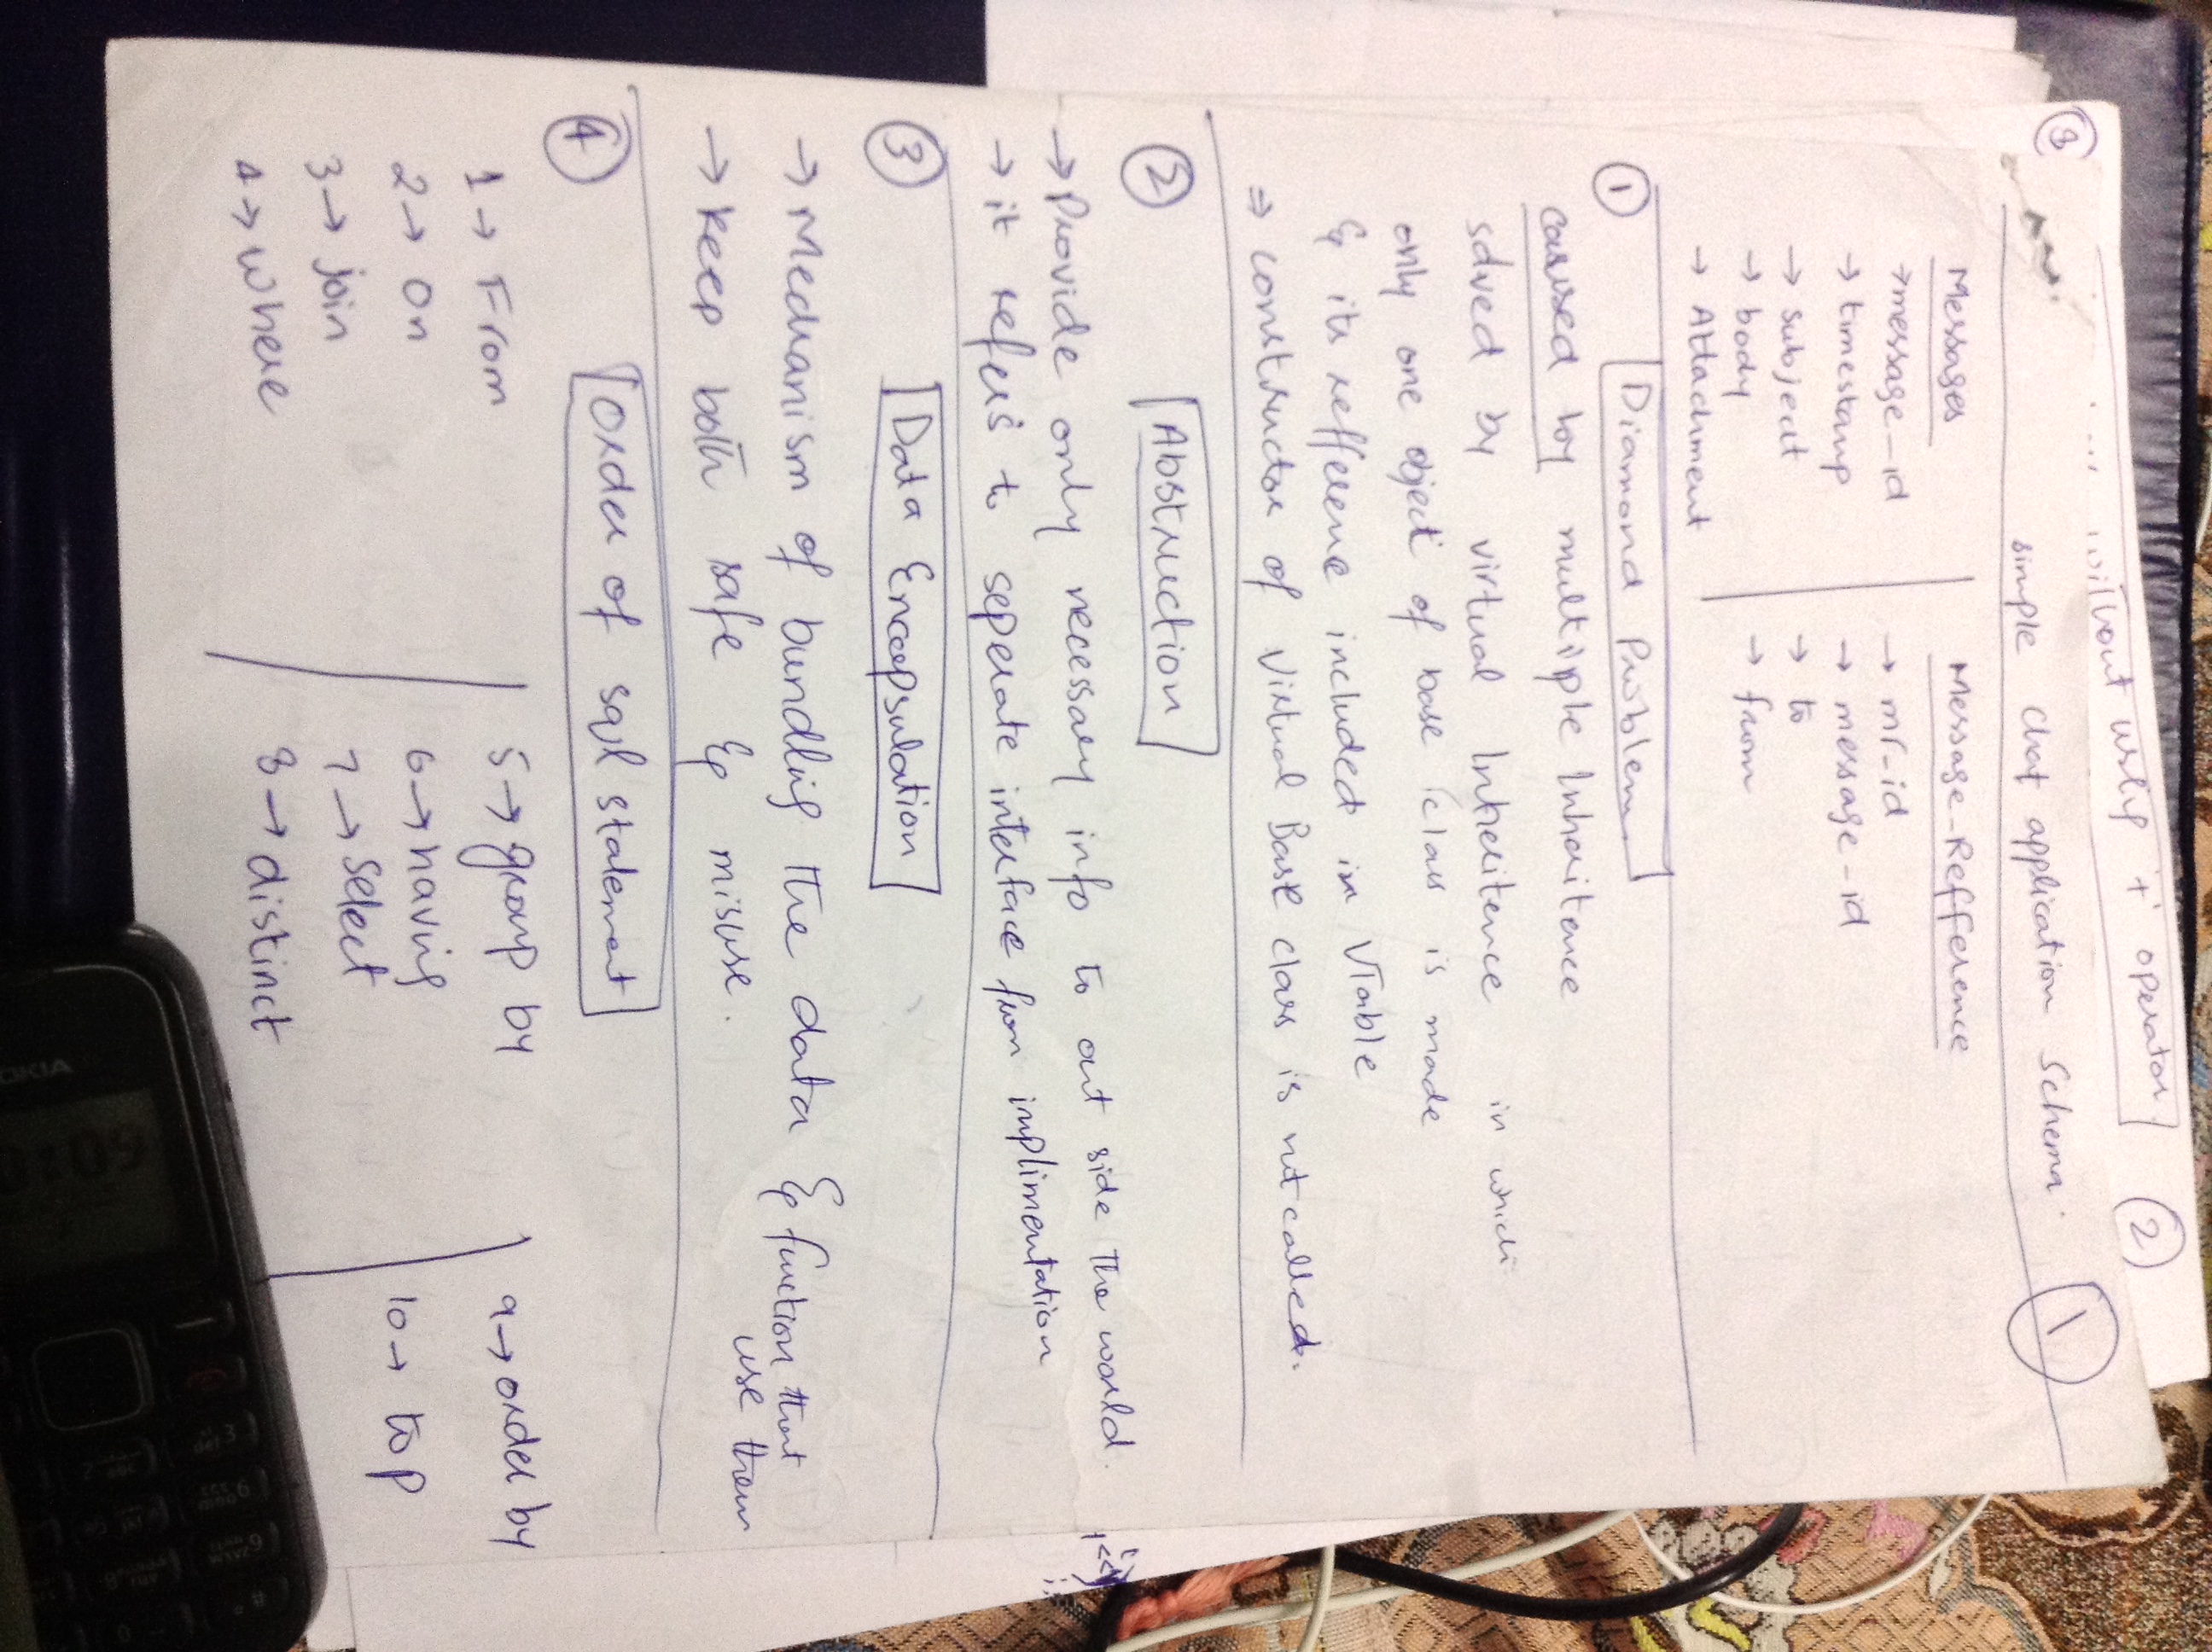 without using '+' operator
2
8
simple Chat application Schema.
1
Messages
→ message_id
→ timestamp
→ Subject
→ body
→ Attachment
Message_Refference
→ mr_id
→ message_id
→ to
→ from
1 Diamond Problem
caused by multiple Inheritence
solved by virtual Inheritence in which
only one object of base class is made
& its refference included in VTable
⇒ constructor of Virtual Base class is not called.
2 Abstruction
→ Provide only necessary info to out side the world.
→ it refers to seperate interface from implimentation
3 Data Encapsulation
→ Mechanism of bundling the data & function that
use them
→ keep both safe & misuse.
4 Order of sql statement
1 → From
2 → On
3 → join
4 → where
5 → group by
6 → having
7 → Select
8 → distinct
9 → order by
10 → top